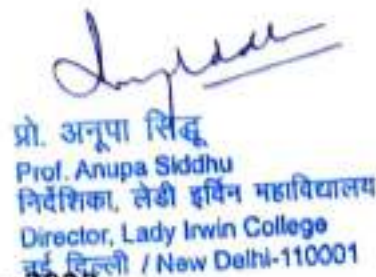 प्रो. अनूपा सिद्धू
Prof. Anupa Siddhu
निर्देशिका, लेडी इर्विन महाविद्यालय
Director, Lady Irwin College
नई दिल्ली / New Delhi-110001